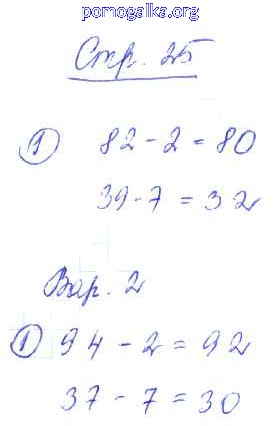 pomogalka.org
Стр. 25
① 82 - 2 = 80
39 - 7 = 32
Вар. 2
① 94 - 2 = 92
37 - 7 = 30